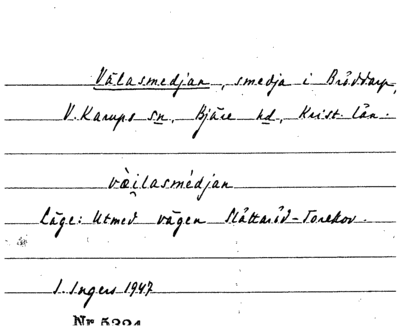 Välasmedjan, smedja i Bröddarp,
V. Karups sn, Bjäre hd, Krist. län.
væ̀i̯lasmédjan
Läge: Utmed vägen Slättaröd–Torekov.
I. Ingers 1947
Nr 5224